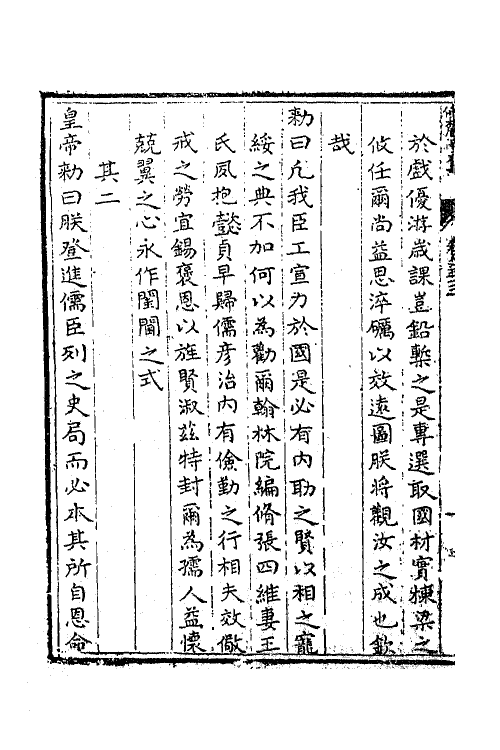 於戲優游歲課豈鉛槧之是專選取國材實棟梁之
攸任爾尚益思淬礪以效遠圖朕將觀汝之成也欽
哉
勑曰凢我臣工宣力於國是必有內助之賢以相之寵
綏之典不加何以為勸爾翰林院編脩張四維妻王
氏夙抱懿貞早歸儒彦治內有儉勤之行相夫效儆
戒之勞宜錫褒恩以旌賢淑兹特封爾為孺人益懷
兢翼之心永作閨閫之式
其二
皇帝勑曰朕登進儒臣列之史局而必本其所自恩命